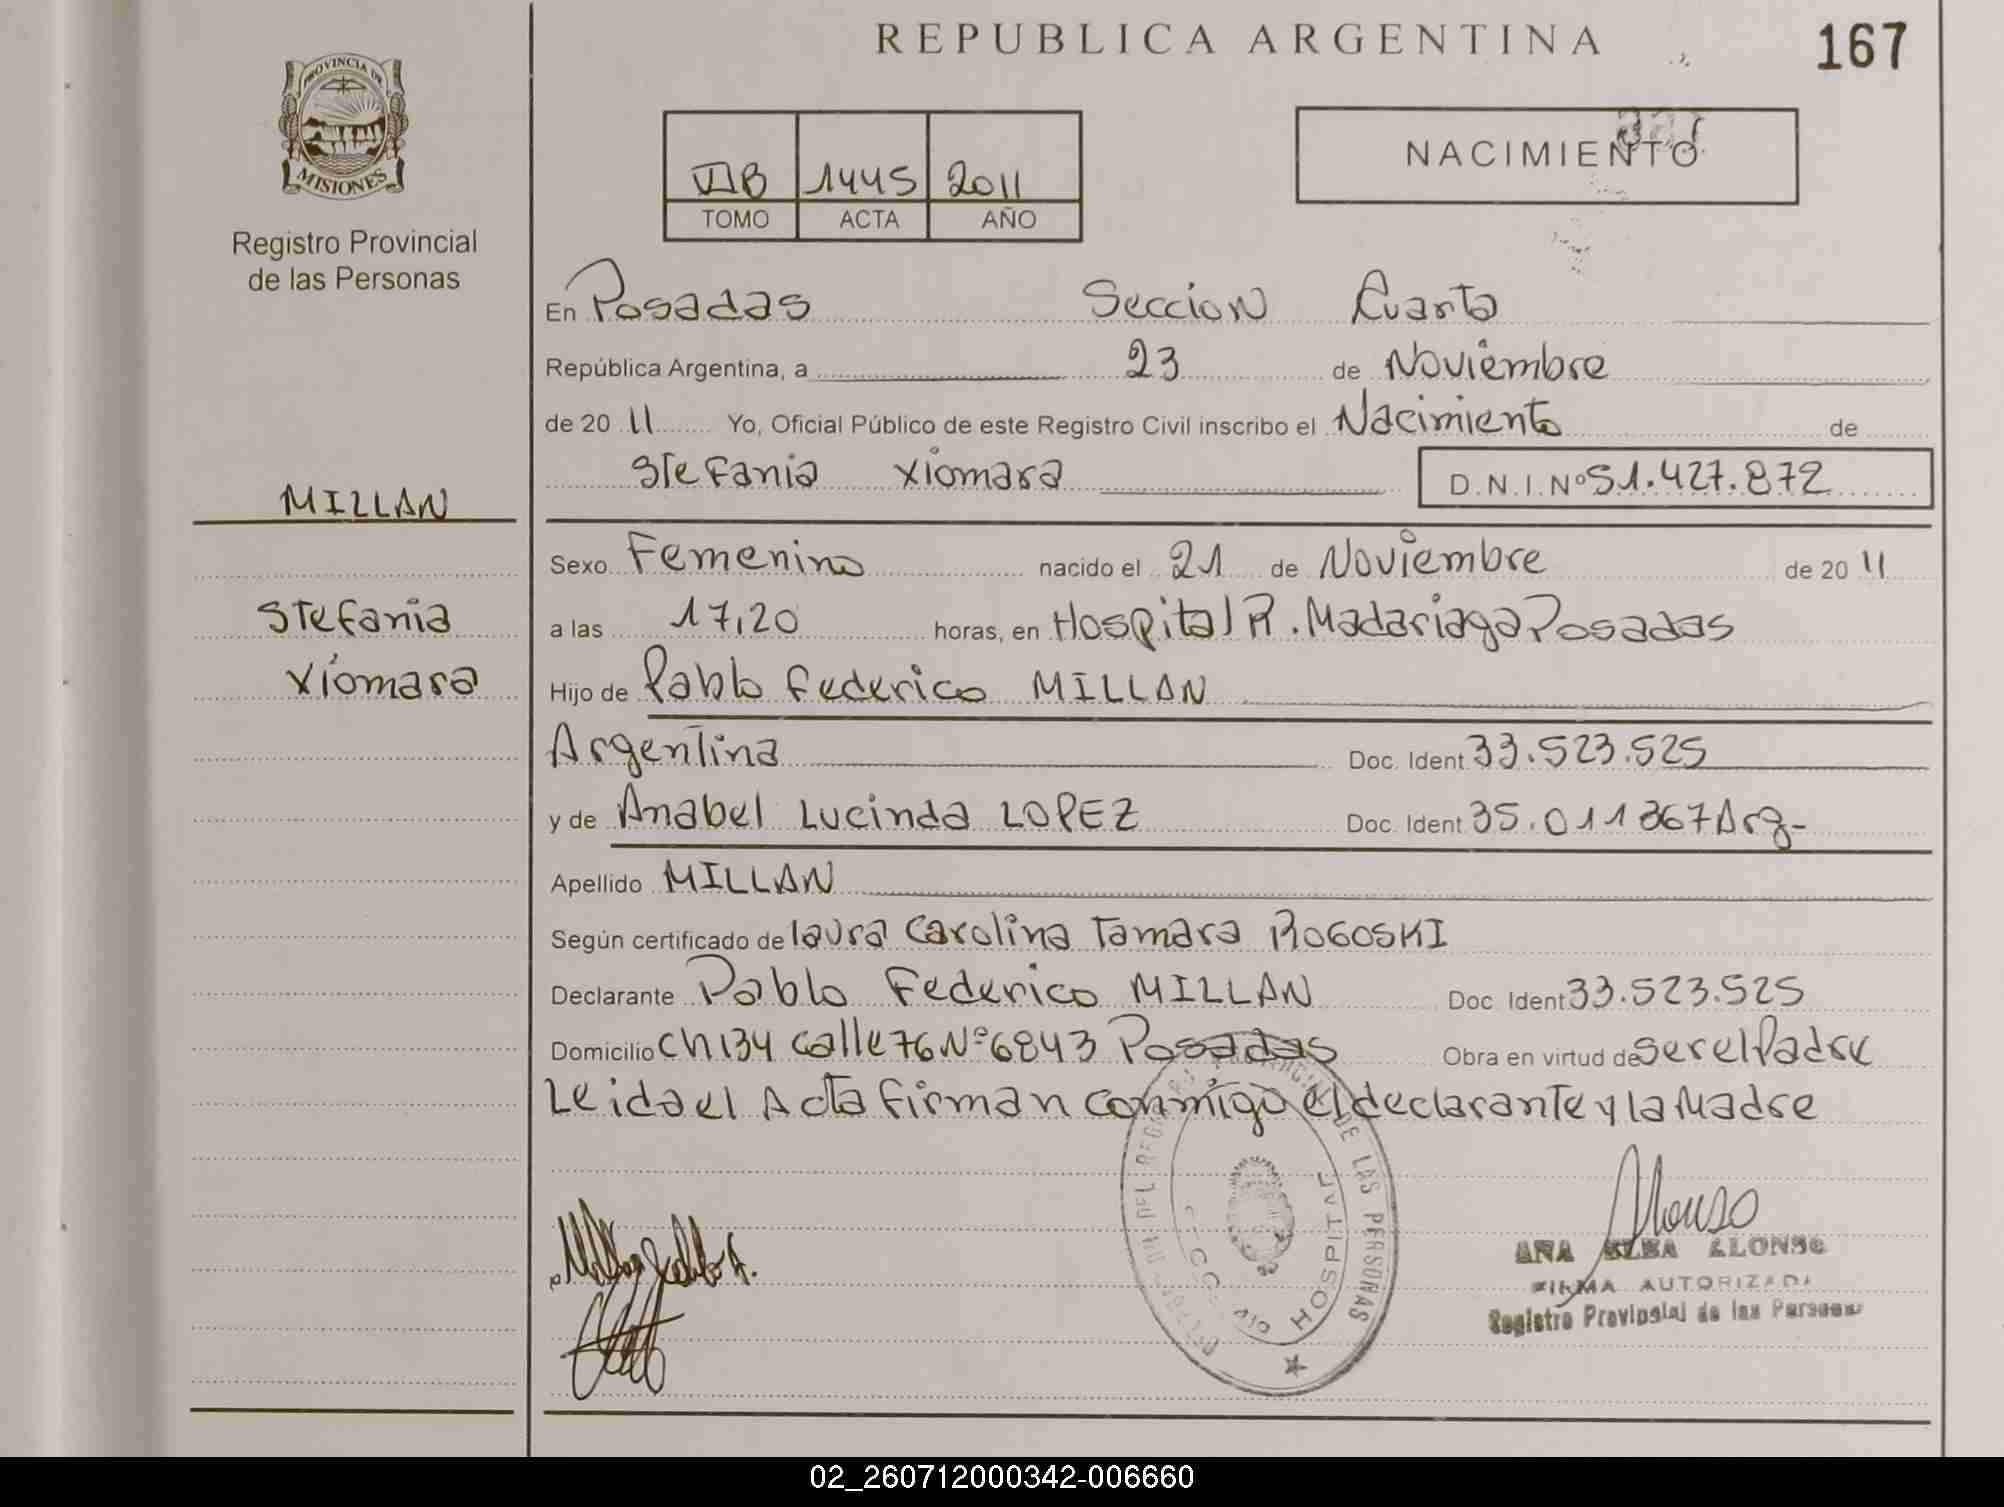 REPUBLICA ARGENTINA
167
PROVINCIA DE
MISIONES
Registro Provincial
de las Personas
VIIB 1445 2011
TOMO ACTA AÑO
NACIMIENTO
En Posadas Seccion Cuarta
República Argentina, a 23 de Noviembre
de 2011 Yo, Oficial Público de este Registro Civil inscribo el Nacimiento de
Stefania Xiomara D.N.I.Nº 51.427.872
MILLAN
Sexo Femenino nacido el 21 de Noviembre de 2011
Stefania
Xiomara
a las 17,20 horas, en Hospital R. Madariaga Posadas
Hijo de Pablo Federico MILLAN
Argentina Doc. Ident 33.523.525
y de Anabel Lucinda LOPEZ Doc. Ident 35.011367 Arg-
Apellido MILLAN
Según certificado de laura Carolina Tamara ROGOSKI
Declarante Pablo Federico MILLAN Doc. Ident 33.523.525
Domicilio CH134 Calle 76 Nº 6843 Posadas Obra en virtud de ser el Padre
Leida el Acta firman conmigo el declarante y la Madre
DE LAS PERSONAS
HOSPITAL
Alonso
ANA ELBA ALONSO
FIRMA AUTORIZADA
Registro Provincial de las Personas
02_260712000342-006660